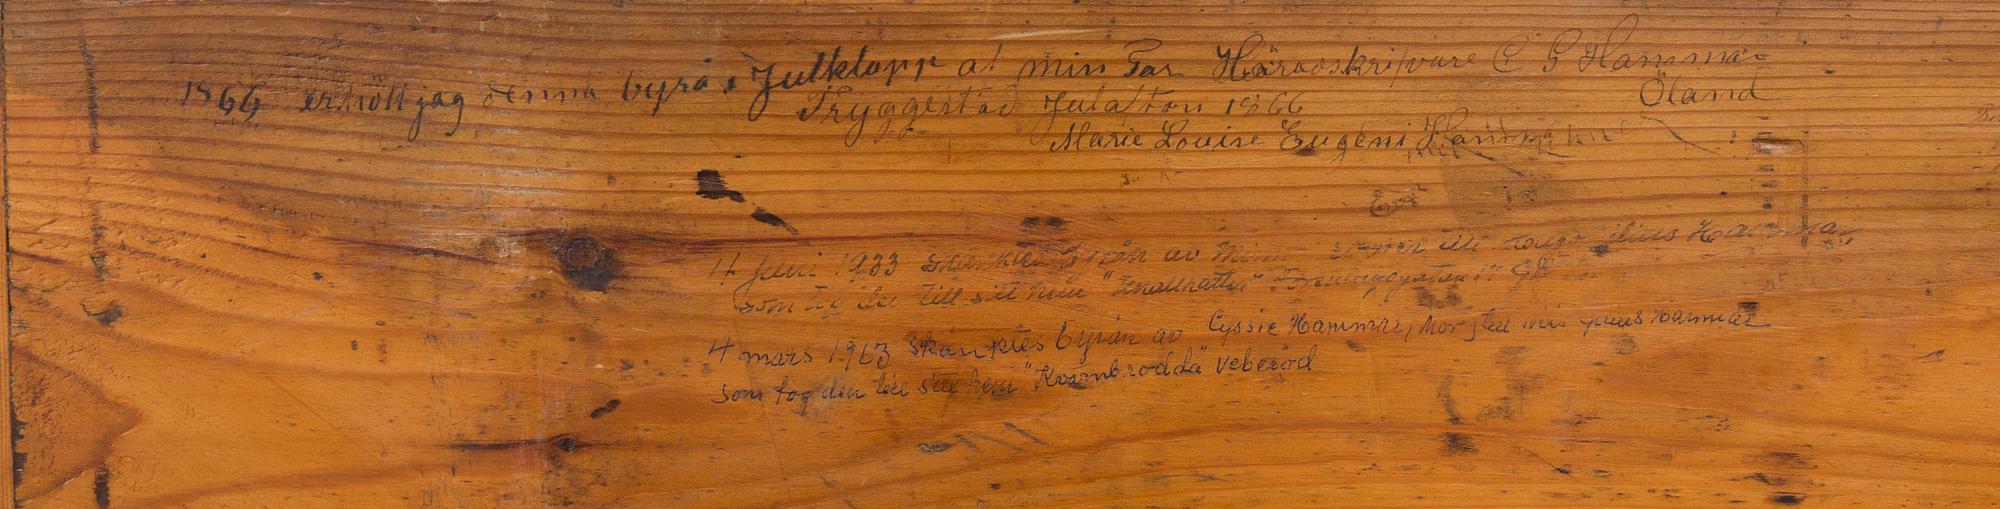 1866 erhöll jag denna byrå i Julklapp af min Far Häradsskrifvare C G Hammar
Tryggestad Julafton 1866 Öland
Marie Louise Eugeni Hammar
4 Juni 1933 skänktes byrån av till Hammar
som tog den till sitt hem
4 mars 1963 skänktes byrån av Cyssie Hammar, Mor, till Hammar
som tog den till sitt hem "Kvarnbrodda" Veberöd